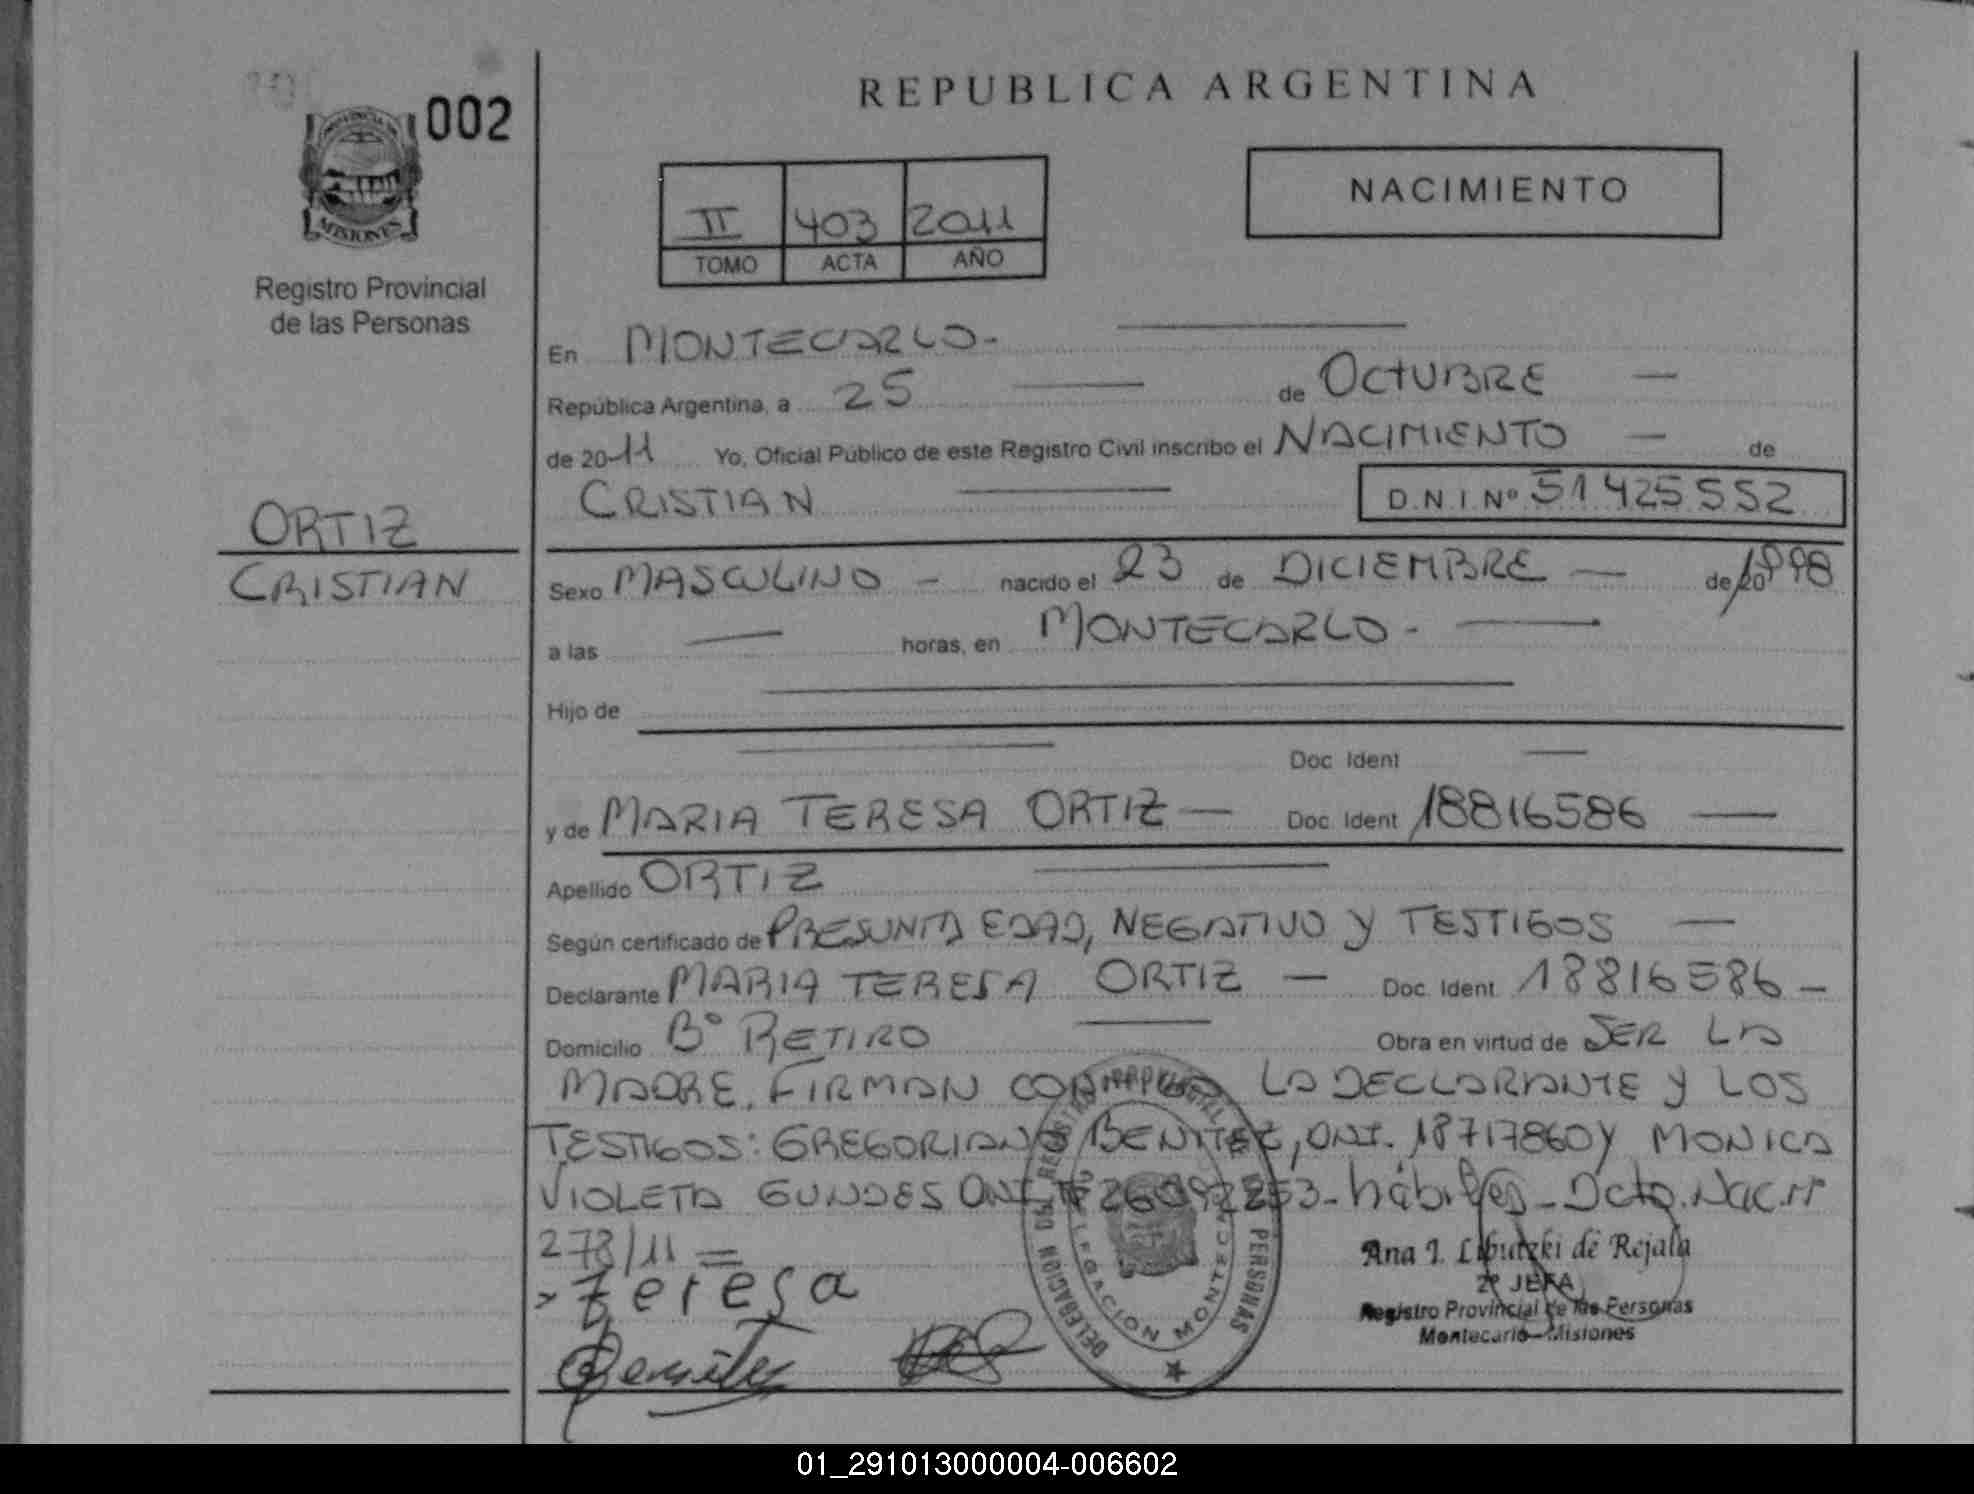 002
PROVINCIA DE
MISIONES
Registro Provincial
de las Personas
ORTIZ
CRISTIAN
REPUBLICA ARGENTINA
NACIMIENTO
II 403 2011
TOMO ACTA AÑO
En MONTECARLO.-
República Argentina, a 25 de OCTUBRE
de 2011 Yo, Oficial Público de este Registro Civil inscribo el NACIMIENTO de
CRISTIAN D.N.I. Nº 51 425 552
Sexo MASCULINO nacido el 23 de DICIEMBRE de 20 1998
a las horas, en MONTECARLO -
Hijo de
Doc. Ident
y de MARIA TERESA ORTIZ Doc. Ident 18816586
Apellido ORTIZ
Según certificado de PRESUNTA EDAD, NEGATIVO Y TESTIGOS
Declarante MARIA TERESA ORTIZ Doc. Ident 18816586
Domicilio Bº RETIRO Obra en virtud de SER LA
MADRE. FIRMAN CONMIGO LA DECLARANTE Y LOS
TESTIGOS: GREGORIANO BENITEZ, DNI. 18717860 Y MONICA
VIOLETA GUNDES DNI Hábiles - Dcto. Nac. nº
278/11 =
Teresa
Benitez
DELEGACION MONTECARLO
PERSONAS
Ana I. Libutzki de Rejala
2º JEFA
Registro Provincial de las Personas
Montecarlo - Misiones
01_291013000004-006602